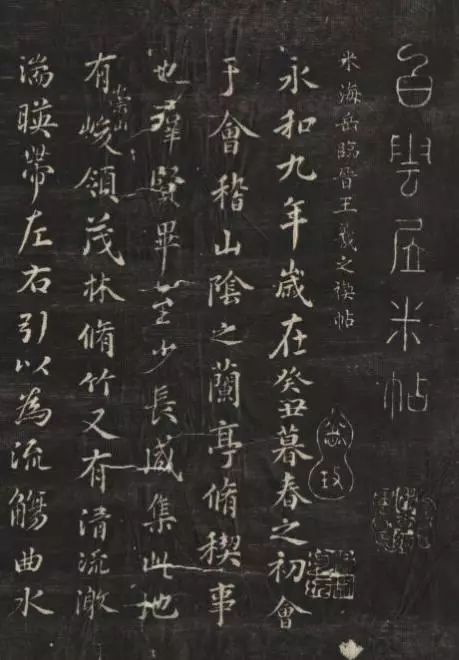 白雲居米帖
米海岳臨晉王羲之禊帖
永和九年歲在癸丑暮春之初會
于會稽山陰之蘭亭脩稧事
也羣賢畢至少長咸集此地
有崇山峻領茂林脩竹又有清流激
湍暎帶左右引以為流觴曲水